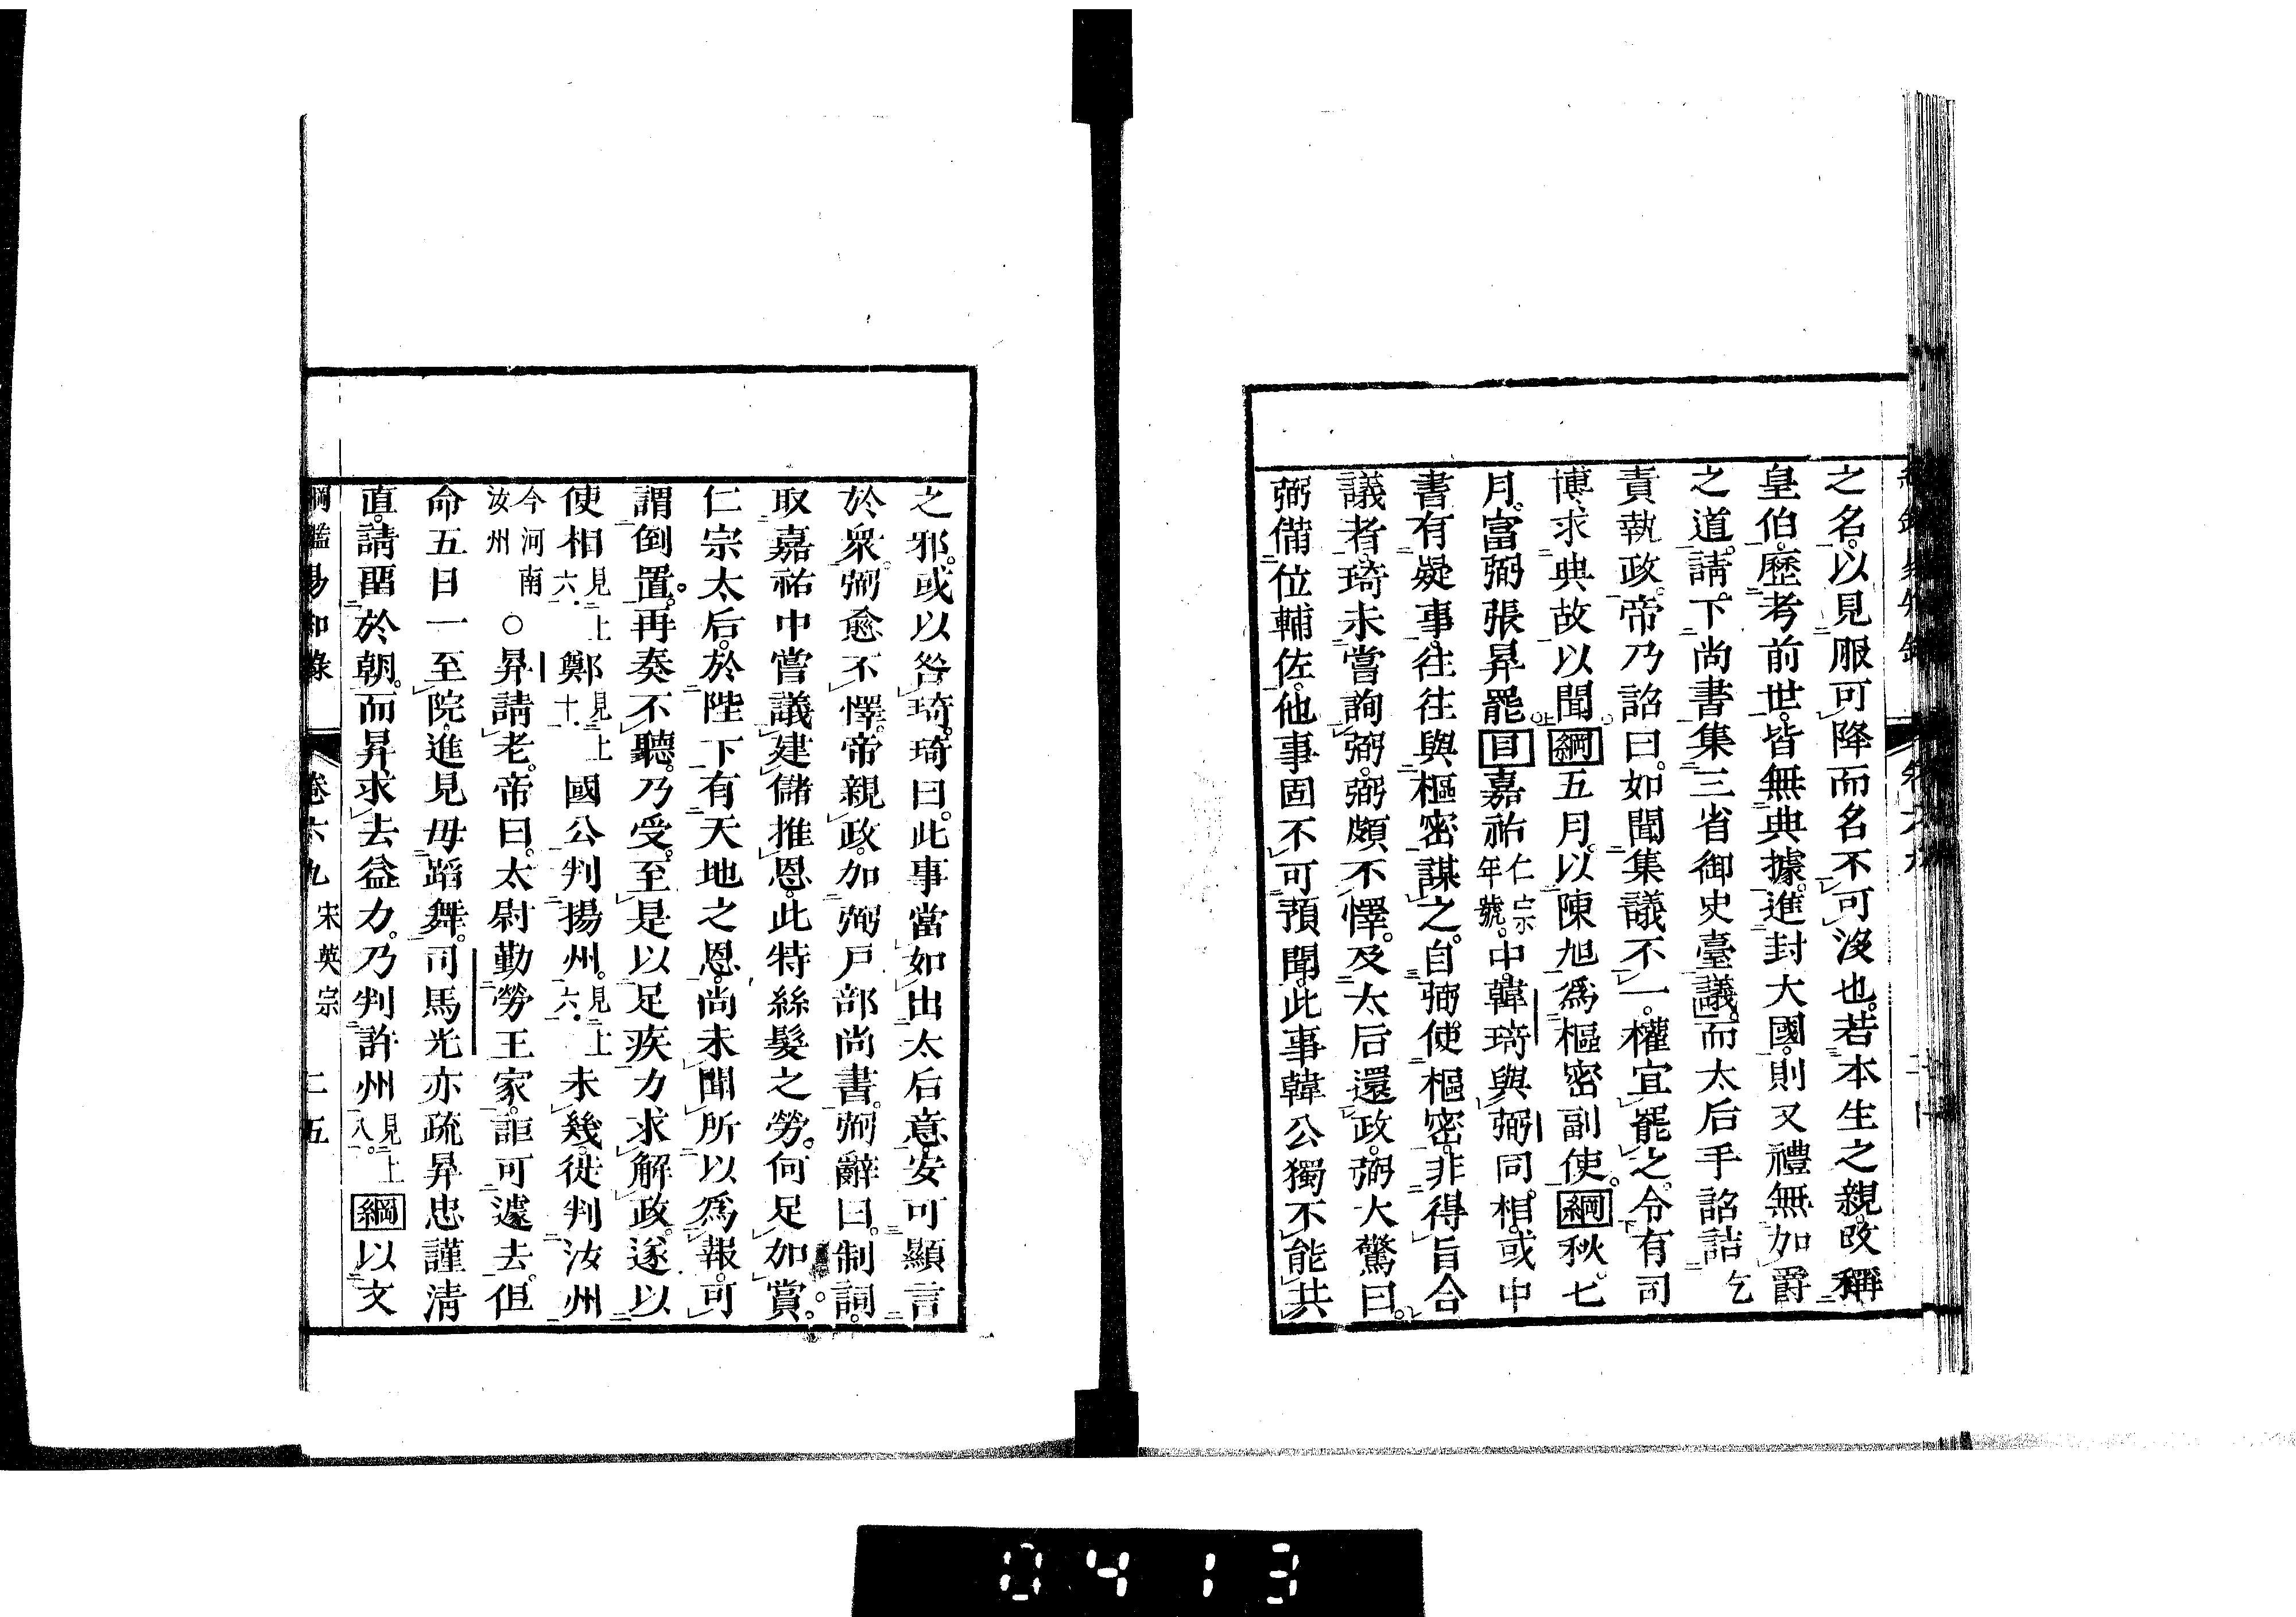 之名。以見服可降而名不可沒也。若本生之親。改稱
皇伯。歷考前世。皆無典據。進封大國。則又禮無加爵
之道。請下尚書集三省御史臺議。而太后手詔詰
責執政。帝乃詔曰。如聞集議不一。權宜罷之。令有司
博求典故以聞。綱五月。以陳旭爲樞密副使。綱秋。七
月。富弼張昇罷。目嘉祐仁宗年號。中。韓琦與弼同相。或中
書有疑事。往往與樞密謀之。自弼使樞密。非得旨合
議者。琦未嘗詢弼。弼頗不懌。及太后還政。弼大驚曰。
弼備位輔佐。他事固不可預聞。此事韓公獨不能共
之邪。或以咎琦。琦曰。此事當如出太后意。安可顯言
於衆。弼愈不懌。帝親政。加弼戶部尚書。弼辭曰。制詞。
取嘉祐中嘗議建儲推恩。此特絲髮之勞。何足加賞。
仁宗太后。於陛下有天地之恩。尚未聞所以爲報。可
謂倒置。再奏不聽。乃受。至是以足疾力求解政。遂以
使相見上六。鄭見上十。國公判揚州。見上六。未幾。徙判汝州
今河南汝州○昇請老。帝曰。太尉勤勞王家。詎可遽去。但
命五日一至院。進見毋蹈舞。司馬光亦疏昇忠謹清
直。請畱於朝。而昇求去益力。乃判許州見上八。綱以文
綱鑑易知錄 卷六九 宋英宗 二五